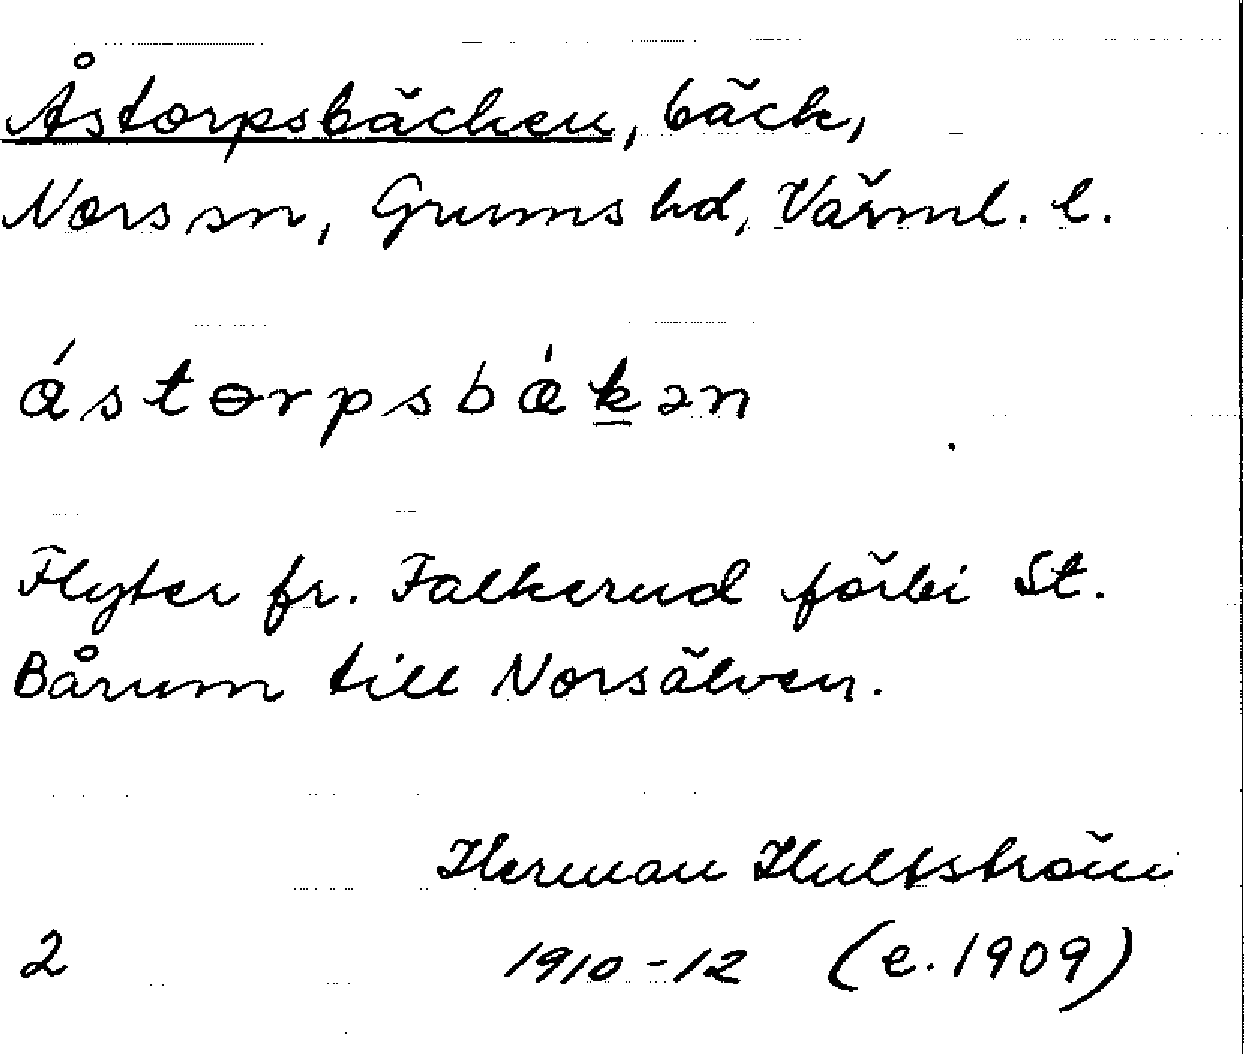 Åstorpsbäcken, bäck,
Nors sn, Grums hd, Värml. l.
åstɵrpsbäkən
Flyter fr. Falkerud förbi St.
Bårum till Norsälven.
Herman Hultström
2 1910-12 (e. 1909)